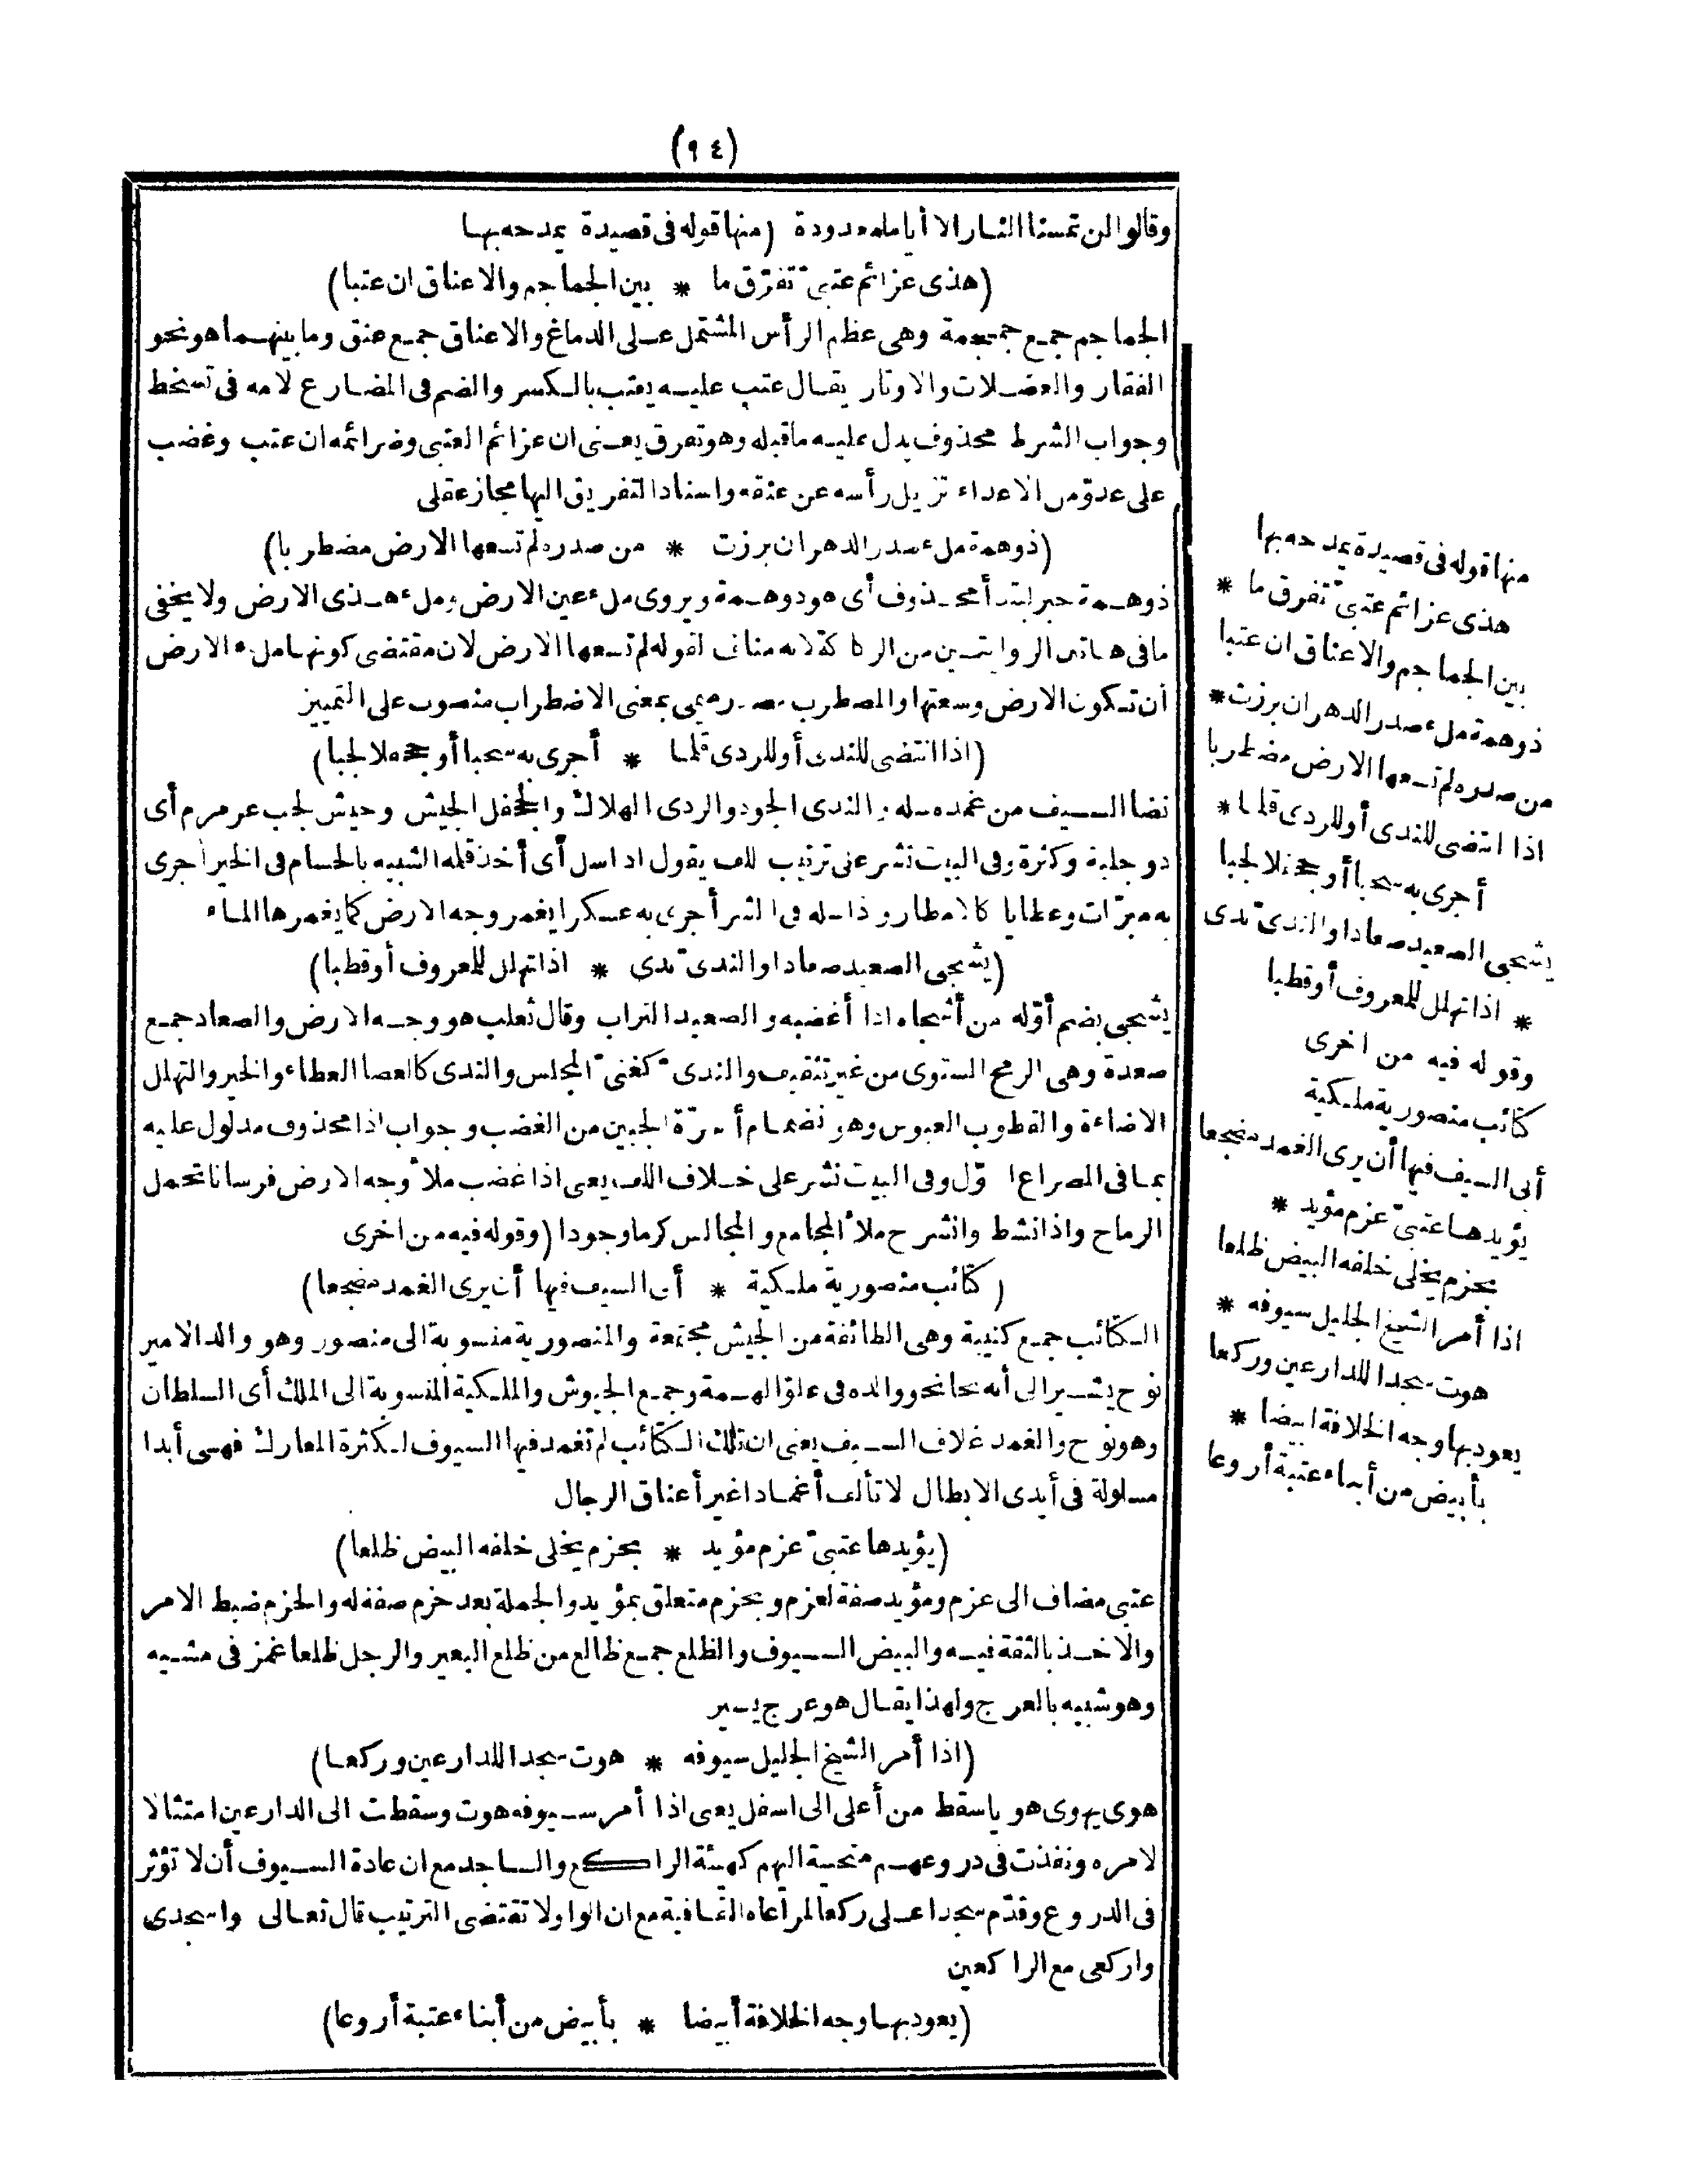 (٩٤)
وقالوا لن تمسنا النار الا أياما معدودة (منها قوله فى قصيدة يمدحه بها
(هذى عزائم عتبىّ تفرّق ما * بين الجماجم والاعناق ان عتبا)
الجماجم جمع جمجمة وهى عظم الرأس المشتمل على الدماغ والاعناق جمع عنق وما بينهما هو نحو
الفقار والعضلات والاوتار يقال عتب عليه يعتب بالكسر والضم فى المضارع لامه فى تسخط
وجواب الشرط محذوف يدل عليه ما قبله وهو تفرق يعنى ان عزائم العتبى وضرائمه ان عتب وغضب
على عدوّ من الاعداء تزيل رأسه عن عنقه واسناد التفريق اليها مجاز عقلى
(ذو همة ملء صدر الدهر ان برزت * من صدره لم تسعها الارض مضطربا)
ذو همة خبر لمبتدأ محذوف أى هو ذو همة ويروى ملء عين الارض وملء هذى الارض ولا يخفى
ما فى هاتين الروايتين من الركاكة لانه مناف لقوله لم تسعها الارض لان مقتضى كونها ملء الارض
أن تكون الارض وسعتها والمضطرب مصدر ميمى بمعنى الاضطراب منصوب على التمييز
(اذا انتضى للندى أو للردى قلما * أجرى به سحبا أو جحفلا لجبا)
نضا السيف من غمده سله والندى الجود والردى الهلاك والجحفل الجيش وجيش لجب عرمرم أى
ذو جلبة وكثرة وفى البيت نشر على ترتيب اللف يقول اذا سل أى أخذ قلمه الشبيه بالحسام فى الخير أجرى
به مبرّات وعطايا كالامطار واذا سله فى الشر أجرى به عسكرا يغمر وجه الارض كما يغمرها الماء
(يشجى الصعيد صعادا والندىّ ندى * اذا تهلل للمعروف أو قطبا)
يشجى بضم أوّله من أشجاه اذا أغضبه والصعيد التراب وقال ثعلب هو وجه الارض والصعاد جمع
صعدة وهى الرمح المستوى من غير تثقيف والندىّ كغنىّ المجلس والندى كالعصا العطاء والخير والتهلل
الاضاءة والقطوب العبوس وهو نضمام أسرّة الجبين من الغضب وجواب اذا محذوف مدلول عليه
بما فى المصراع الاوّل وفى البيت نشر على خلاف اللف يعنى اذا غضب ملأ وجه الارض فرسانا تحمل
الرماح واذا نشط وانشرح ملأ المجامع والمجالس كرما وجودا (وقوله فيه من اخرى
(كتائب منصورية ملكية * أبى السيف فيها أن يرى الغمد مضجعا)
الكتائب جمع كتيبة وهى الطائفة من الجيش مجتمعة والمنصورية منسوبة الى منصور وهو والد الامير
نوح يشير الى أنه نحا نحو والده فى علوّ الهمة وجمع الجيوش والملكية المنسوبة الى الملك أى السلطان
وهو نوح والغمد غلاف السيف يعنى ان تلك الكتائب لم تغمد فيها السيوف لكثرة المعارك فهى أبدا
مسلولة فى أيدى الابطال لا تألف أغمادا غير أعناق الرجال
(يؤيدها عتبىّ عزم مؤيد * بحزم يخلى خلفه البيض ظلعا)
عتبى مضاف الى عزم ومؤيد صفة لعزم وبحزم متعلق بمؤيد والجملة بعد حزم صفة له والحزم ضبط الامر
والاخذ بالثقة فيه والبيض السيوف والظلع جمع ظالع من ظلع البعير والرجل ظلعا غمز فى مشيه
وهو شبيه بالعرج ولهذا يقال هو عرج يسير
(اذا أمر الشيخ الجليل سيوفه * هوت سجدا للدارعين وركعا)
هوى يهوى هويا سقط من أعلى الى اسفل يعنى اذا أمر سيوفه هوت وسقطت الى الدارعين امتثالا
لامره ونفذت فى دروعهم منحنية اليهم كهيئة الراكع والساجد مع ان عادة السيوف أن لا تؤثر
فى الدروع وقدّم سجدا على ركعا لمراعاه القافية مع ان الواو لا تقتضى الترتيب قال تعالى واسجدى
واركعى مع الراكعين
(يعود بها وجه الخلافة أبيضا * بأبيض من أبناء عتبة أروعا)
منها قوله فى قصيدة يمدحه بها
هذى عزائم عتبىّ تفرق ما *
بين الجماجم والاعناق ان عتبا
ذو همة ملء صدر الدهر ان برزت *
من صدره لم تسعها الارض مضطربا
اذا انتضى للندى أو للردى قلما *
أجرى به سحبا أو جحفلا لجبا
يشجى الصعيد صعادا والندىّ ندى
* اذا تهلل للمعروف أو قطبا
وقوله فيه من اخرى
كتائب منصورية ملكية
أبى السيف فيها أن يرى الغمد مضجعا
يؤيدها عتبىّ عزم مؤيد *
بحزم يخلى خلفه البيض ظلعا
اذا أمر الشيخ الجليل سيوفه *
هوت سجدا للدارعين وركعا
يعود بها وجه الخلافة ابيضا *
بأبيض من أبناء عتبة أروعا